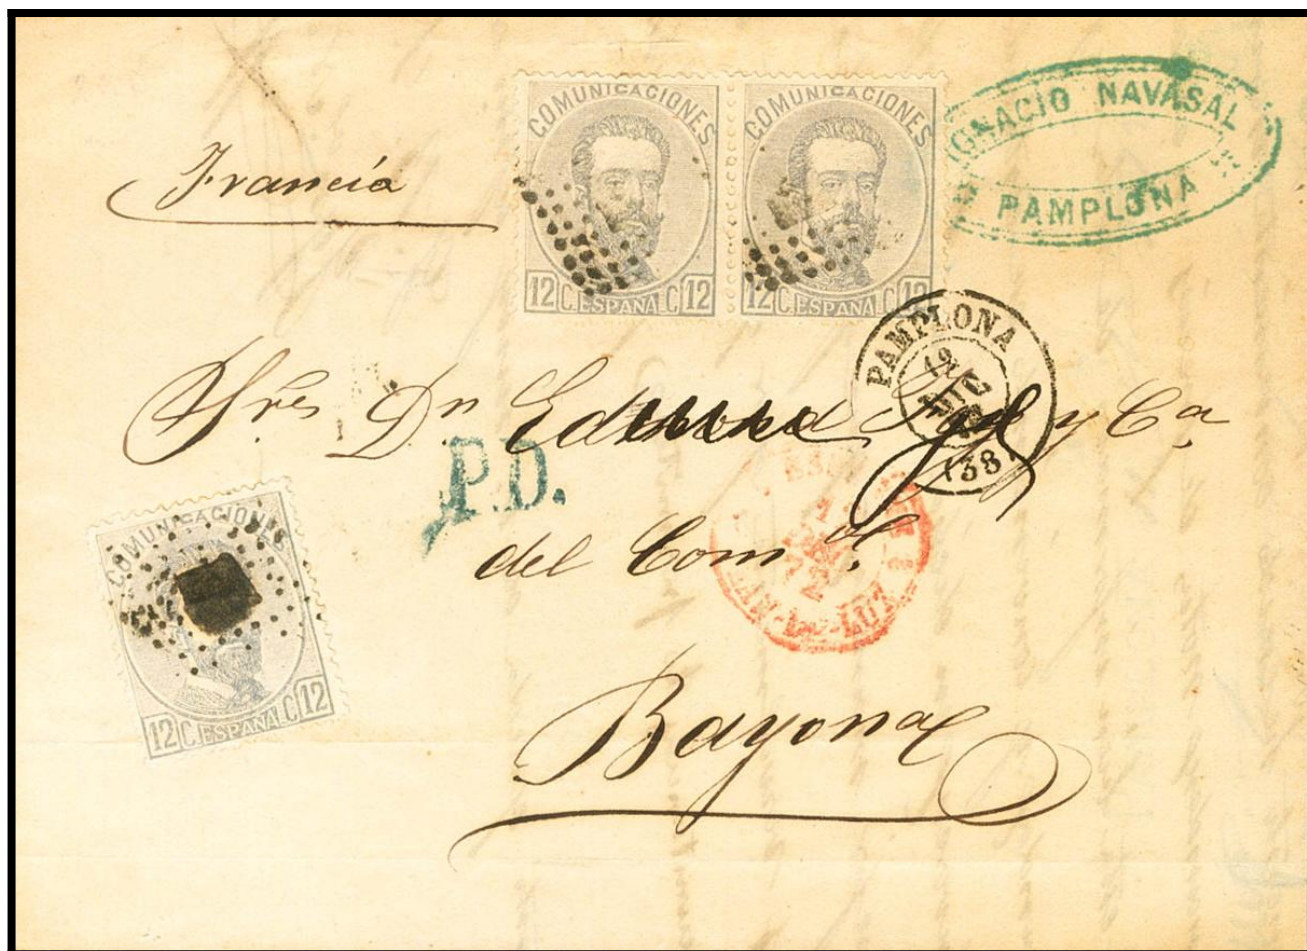 Francia
COMUNICACIONES
12 C. ESPAÑA. C 12
COMUNICACIONES
12 C. ESPAÑA. C 12
IGNACIO NAVASAL
PAMPLONA
PAMPLONA
(38)
Sres Dn y Ca
P.D.
del Comº
LUZ
COMUNICACIONES
12 C. ESPAÑA. C 12
Bayona